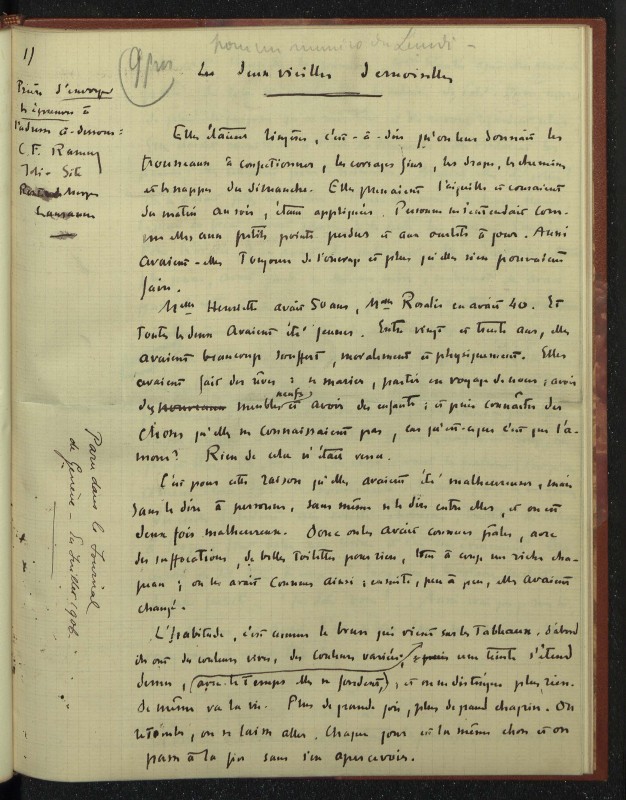 pour un numéro du Lundi –
1)
9 pts
Les deux vieilles demoiselles
Prière d'envoyer
les épreuves à
l'adresse ci-dessous :
C. F. Ramuz
Joli-Site
Lausanne
Elles étaient lingères, c'est-à-dire qu'on leur donnait les
trousseaux à confectionner, les ouvrages fins, les draps, les chemises
et les nappes du dimanche. Elles prenaient l'aiguille et cousaient
du matin au soir, étant appliquées. Personne ne s'entendait com-
me elles aux petits points perdus et aux ourlets à jour. Aussi
avaient-elles toujours de l'ouvrage et plus qu'elles n'en pouvaient
faire.
Mlle Henriette avait 50 ans, Mlle Rosalie en avait 40. Et
toutes les deux avaient été jeunes. Entre vingt et trente ans, elles
avaient beaucoup souffert, moralement et physiquement. Elles
avaient fait des rêves : se marier, partir en voyage de noces ; avoir
des meubles neufs et avoir des enfants ; et puis connaître des
choses qu'elles ne connaissaient pas, car qu'est-ce que c'est que l'a-
mour ? Rien de cela n'était venu.
C'est pour cette raison qu'elles avaient été malheureuses, mais
sans le dire à personne, sans même se le dire entre elles, et on est
deux fois malheureux. Donc on les avait connues pâles, avec
des suffocations, de belles toilettes pour rien, tout à coup un riche cha-
peau ; on les avait connues ainsi ; ensuite, peu à peu, elles avaient
changé.
L'habitude, c'est comme le brun qui vient sur les tableaux. D'abord
ils ont des couleurs vives, des couleurs variées, puis une teinte s'étend
dessus, (avec le temps elles se fondent,) et on ne distingue plus rien.
De même va la vie. Plus de grande joie, plus de grand chagrin. On
retombe, on se laisse aller. Chaque jour est la même chose et on
passe à la fin sans s'en apercevoir.
Paru dans le Journal
de Genève du Juillet 1906.